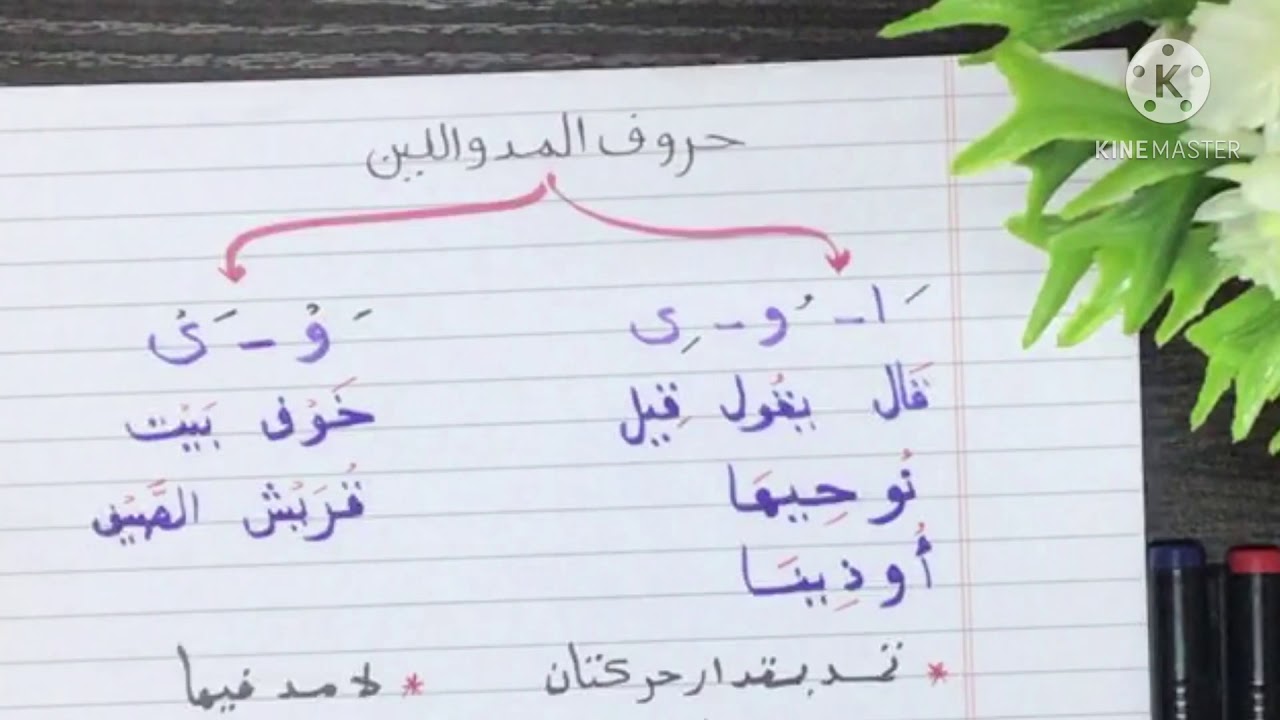 حروف المد واللين
َ ا - ُ و - ِ ى
َ وْ - َ ىْ
قَال يقُول قِيل
خَوْف بَيْت
نُوحِيهَا
قُرَيْش الصَّيْف
أُوذِينَا
* تمد بمقدار حركتان
* لا مد فيها
KINEMASTER